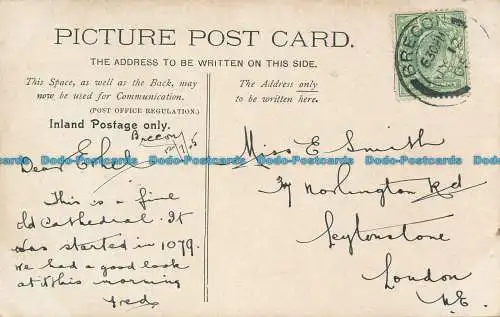 PICTURE POST CARD.
THE ADDRESS TO BE WRITTEN ON THIS SIDE.
This Space, as well as the Back, may
now be used for Communication.
(POST OFFICE REGULATION.)
Inland Postage only.
The Address only
to be written here.
BRECON
Brecon
Dear Ethel
This is a fine
old Cathedral. It
was started in 1079.
We had a good look
at it this morning
Fred
Miss E Smith
37 Norlington Rd
Leytonstone
London
N.E.
Dodo-Postcards Dodo-Postcards Dodo-Postcards Dodo-Postcards Dodo-Postcards